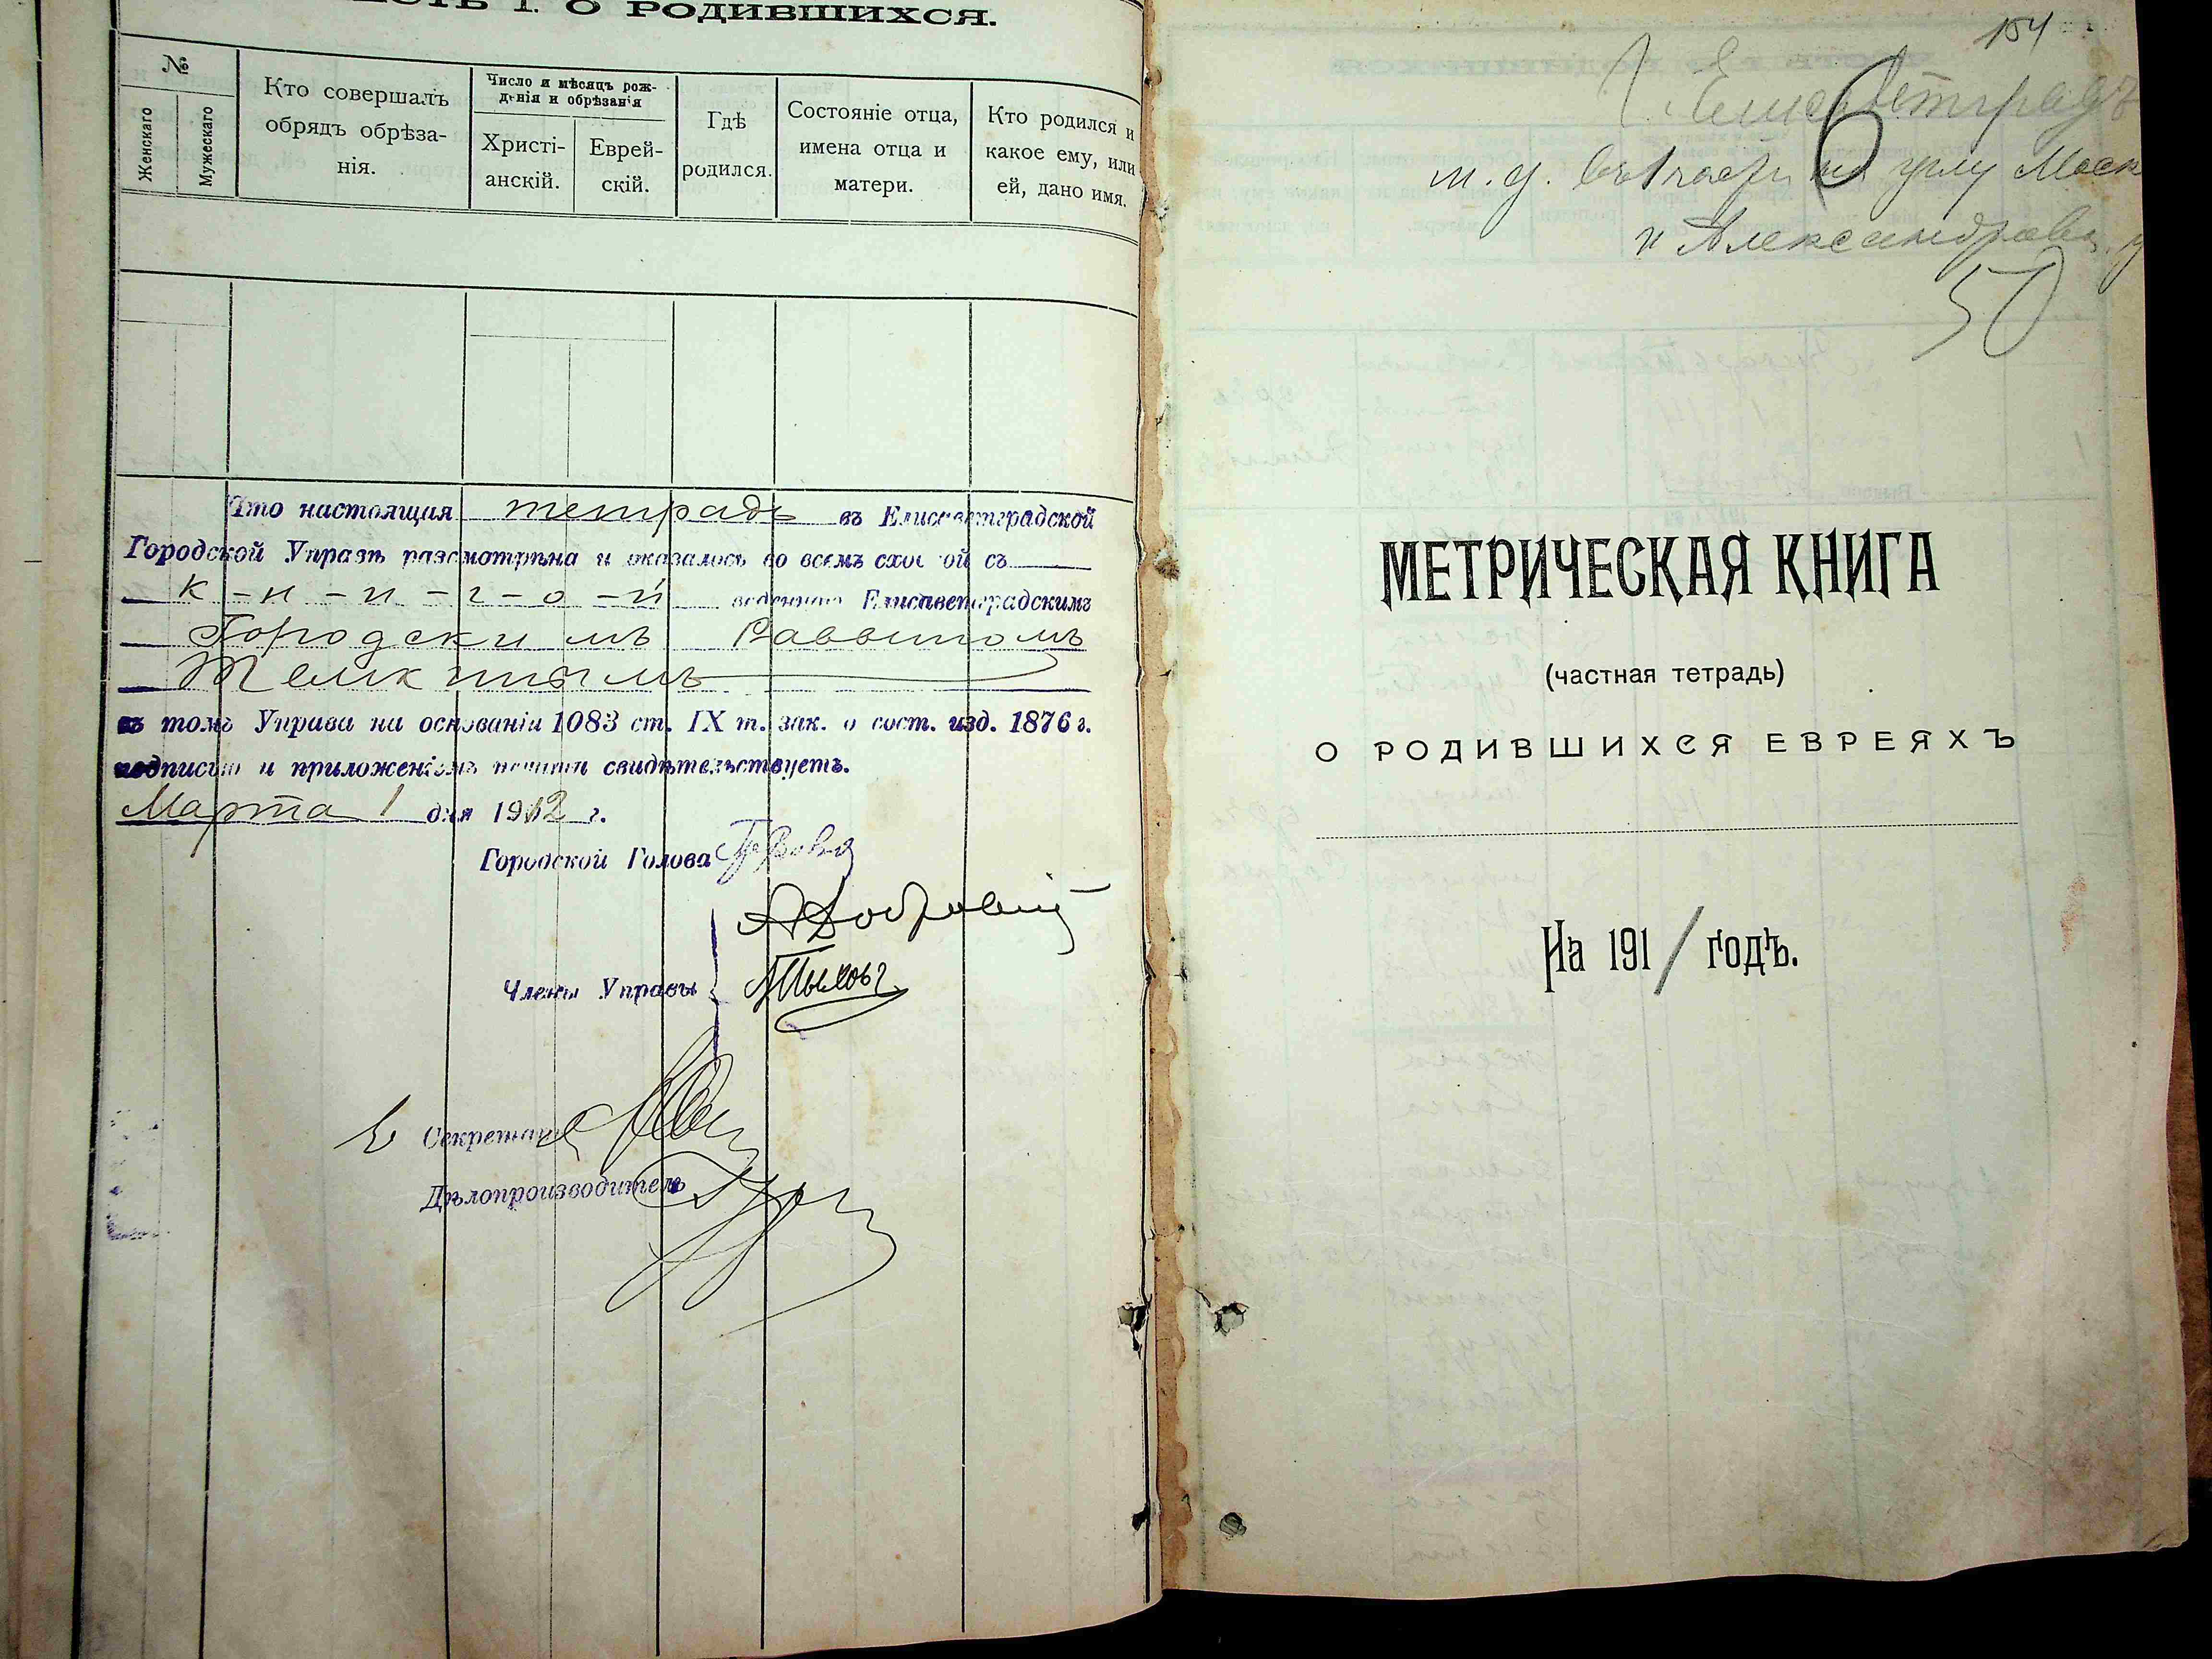 ЧАСТЬ I. О РОДИВШИХСЯ.
№
Женскаго
Мужескаго
Кто совершалъ
обрядъ обрѣза-
нія.
Число и мѣсяцъ рож-
денія и обрѣзанія
Христі-
анскій.
Еврей-
скій.
Гдѣ
родился.
Состояніе отца,
имена отца и
матери.
Кто родился и
какое ему, или
ей, дано имя.
Что настоящия тетрадь въ Елисаветградской
Городской Управѣ разсмотрѣна и оказалось во всемъ сходной съ
к-н-и-г-о-й веденною Елисаветградскимъ
Городскимъ Раввиномъ
Темкинымъ
въ томъ Управа на основаніи 1083 ст. IX т. зак. о сост. изд. 1876 г.
подписью и приложеніемъ печати свидѣтельствуетъ.
Марта 1 дня 1912 г.
Городской Голова
Члены Управы
Секретарь
Дѣлопроизводитель
154
Г. Елисаветградъ
6
углу Моск
и Александровс
50
МЕТРИЧЕСКАЯ КНИГА
(частная тетрадь)
О РОДИВШИХСЯ ЕВРЕЯХЪ
На 1911 годъ.